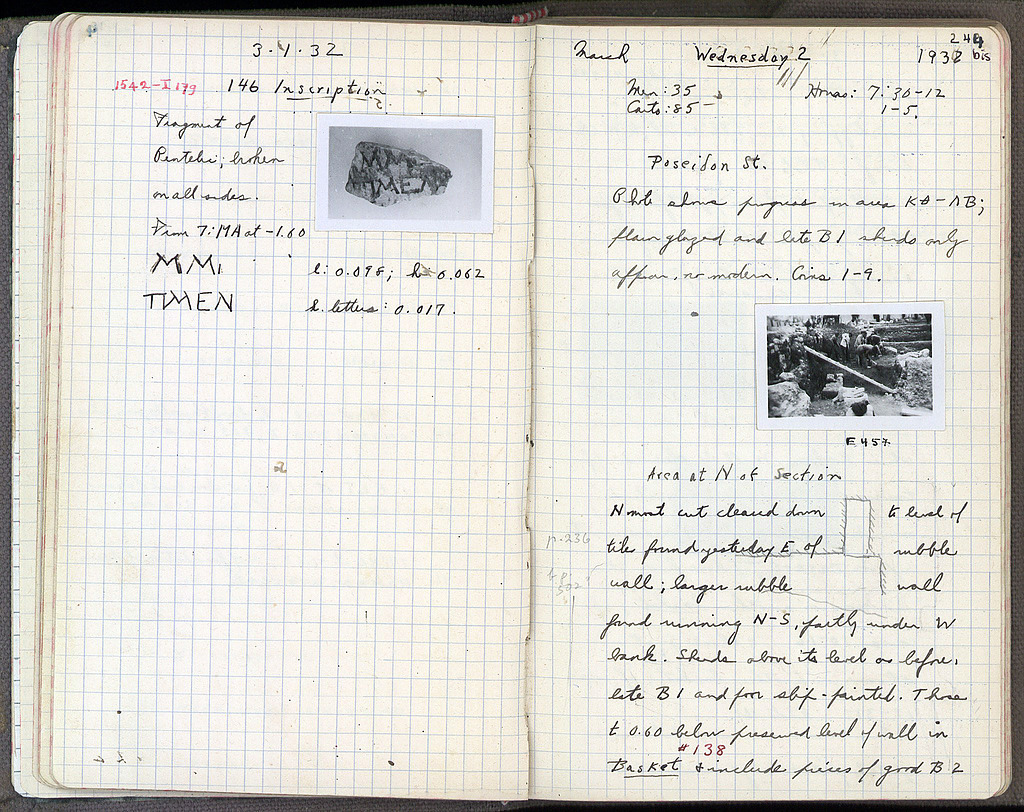 3·1·32
1542-I 179 146 Inscription
Fragment of
Pentelic; broken
on all sides.
From 7:MA at -1.60
MMI l: 0.098; h 0.062
TIMEN h. letters: 0.017.
MMI
TIMEN
244 bis
March Wednesday 2 1932
Men: 35 Hours: 7:30-12
Carts: 85 1-5.
Poseidon St.
Photo shows progress in area
plain glazed and late B1 sherds only
appear, no modern. Coins 1-9.
E 457
Area at N of Section
N most cut cleared down to level of
p. 236 tile found yesterday E of rubble
wall; larger rubble wall
found running N-S, partly under W
bank. Sherds above its level as before,
late B1 and poor slip-painted. Those
to 0.60 below preserved level of wall in
#138
Basket & include pieces of good B2